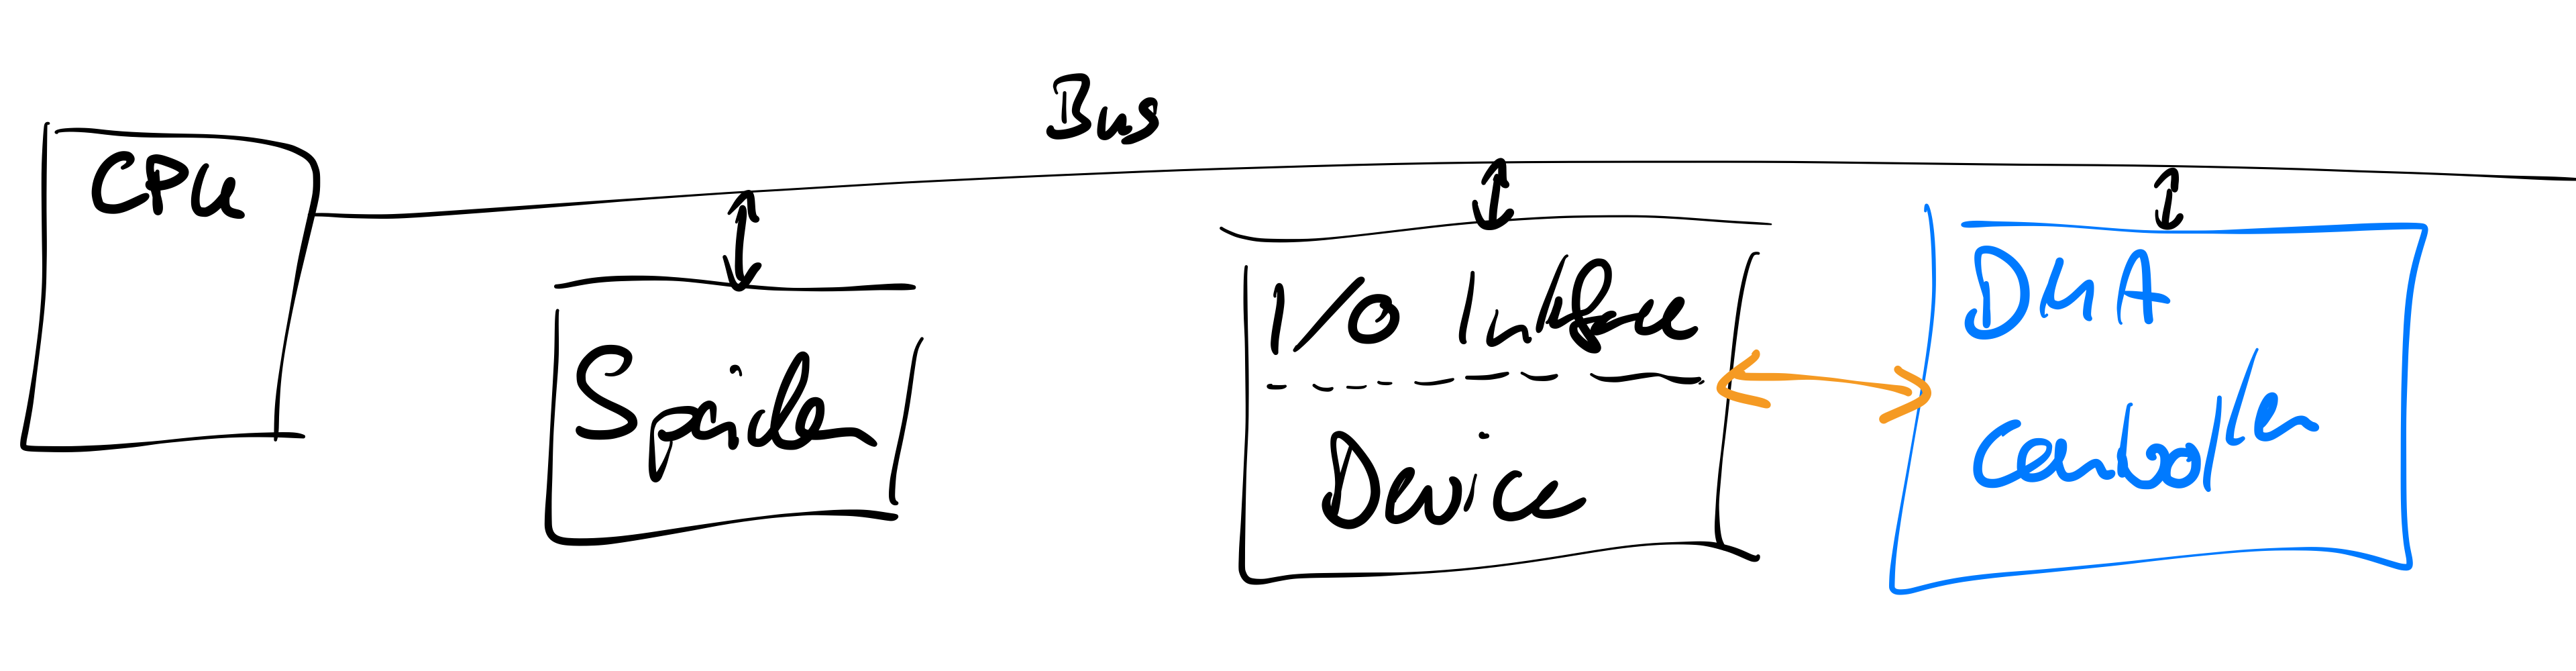 Bus
CPU
Speicher
I/O Interface
Device
DMA
Controller